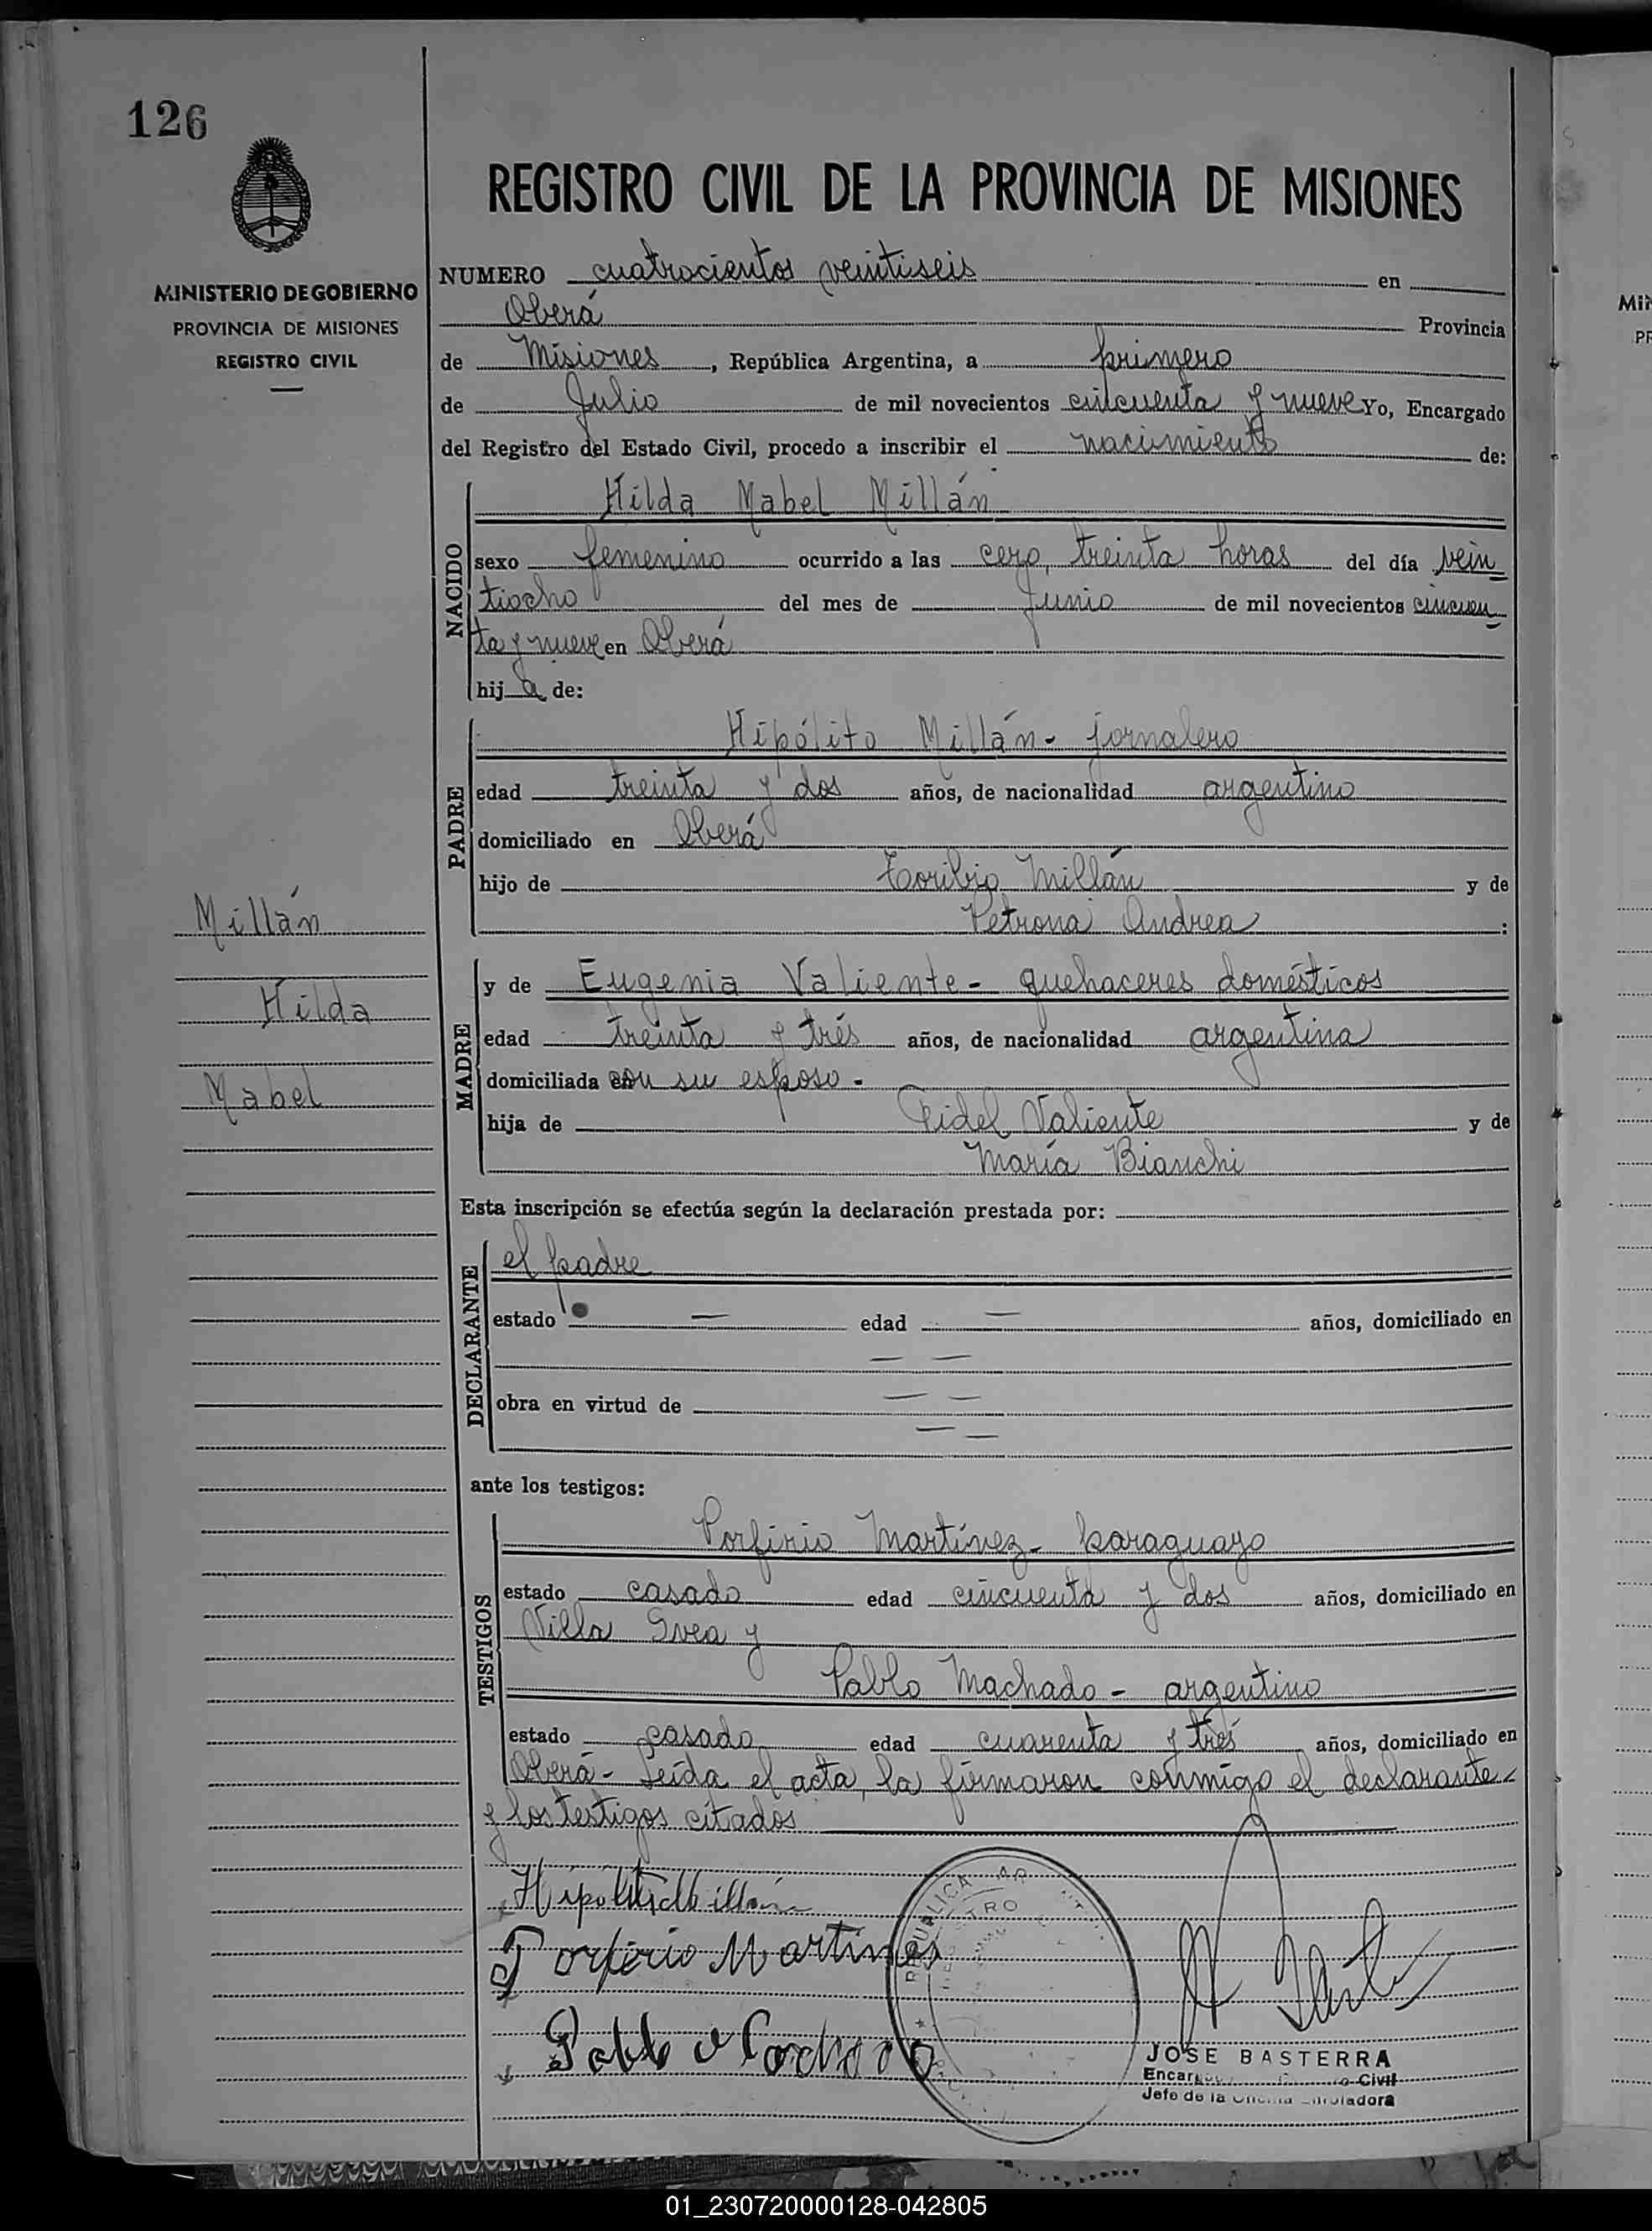 126
MINISTERIO DE GOBIERNO
PROVINCIA DE MISIONES
REGISTRO CIVIL
REGISTRO CIVIL DE LA PROVINCIA DE MISIONES
NUMERO cuatrocientos veintiseis en
Oberá Provincia
de Misiones, República Argentina, a primero
de Julio de mil novecientos cincuenta y nueve Yo, Encargado
del Registro del Estado Civil, procedo a inscribir el nacimiento de:
NACIDO
Hilda Mabel Millán
sexo femenino ocurrido a las cero, treinta horas del día vein
tiocho del mes de Junio de mil novecientos cincuen
ta y nueve en Oberá
hija de:
PADRE
Hipólito Millán - jornalero
edad treinta y dos años, de nacionalidad argentino
domiciliado en Oberá
hijo de Toribio Millán y de
Petrona Andrea :
MADRE
y de Eugenia Valiente - quehaceres domésticos
edad treinta y trés años, de nacionalidad argentina
domiciliada con su esposo -
hija de Fidel Valiente y de
María Bianchi
Esta inscripción se efectúa según la declaración prestada por:
DECLARANTE
el padre
estado — edad — años, domiciliado en
— —
obra en virtud de — —
— —
ante los testigos:
TESTIGOS
Porfirio Martínez - paraguayo
estado casado edad cincuenta y dos años, domiciliado en
Villa Svea y
Pablo Machado - argentino
estado casado edad cuarenta y trés años, domiciliado en
Oberá - Leída el acta, la firmaron conmigo el declarante
y los testigos citados
Millán
Hilda
Mabel
Hipólito Millán
Porfirio Martines
Pablo Machado
REPUBLICA AR
JOSE BASTERRA
Civil
Jefe de la
01_230720000128-042805